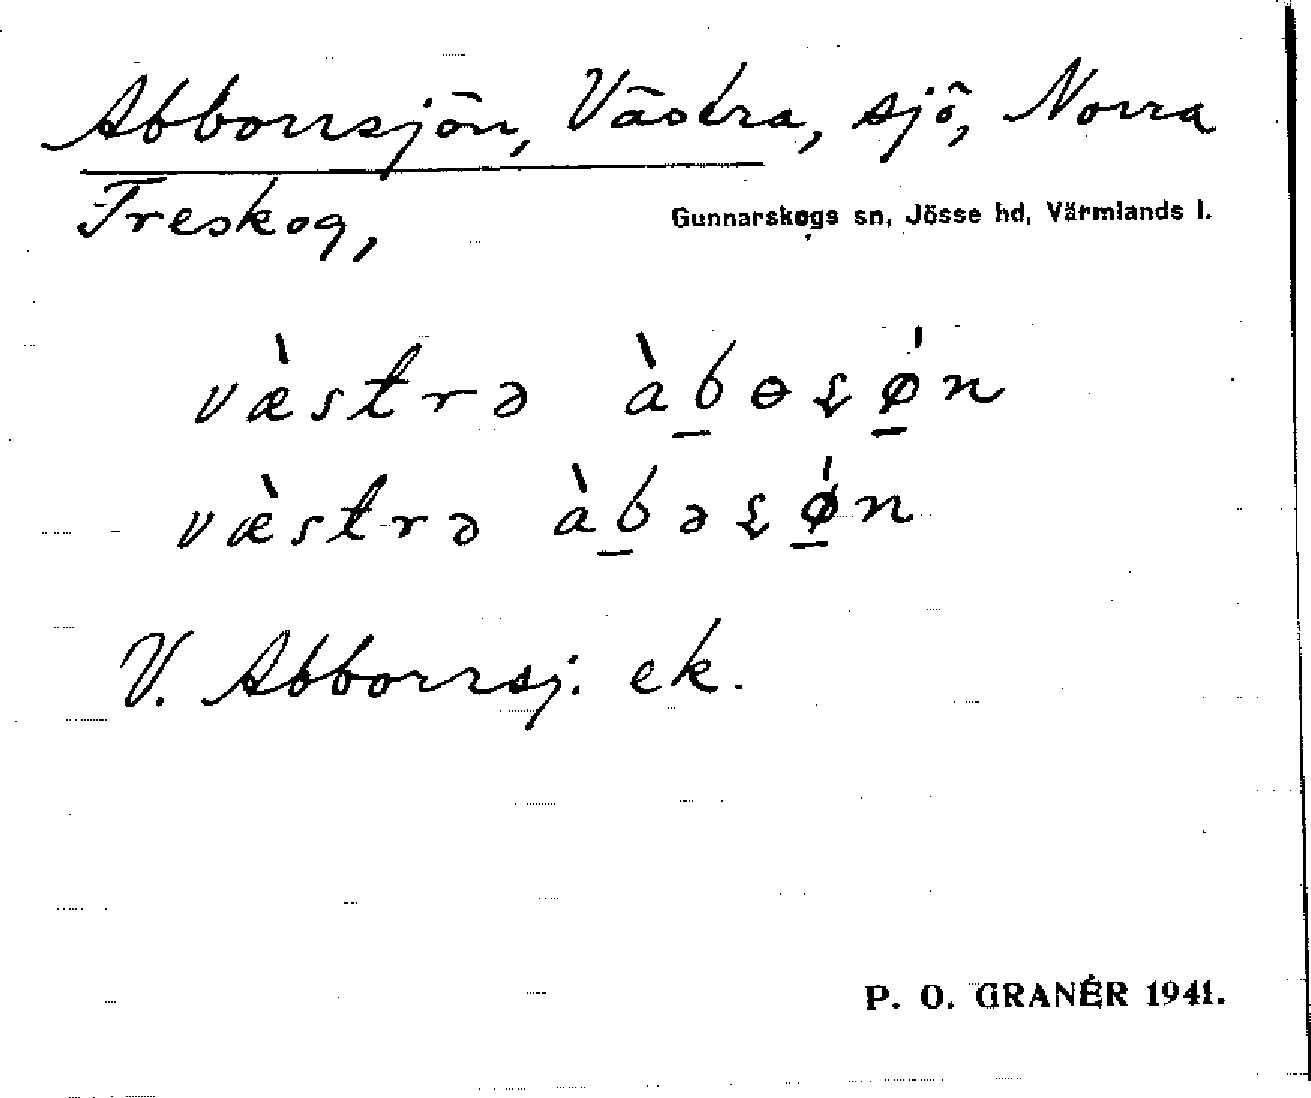 Abborrsjön, Västra, sjö, Norra
Treskog,
Gunnarskogs sn, Jösse hd, Värmlands l.
væ̀strə àb̲ɵʂǿ̲n
væ̀strə àb̲əʂǿ̲n
V. Abborrsj. ek.
P. O. GRANÉR 1941.